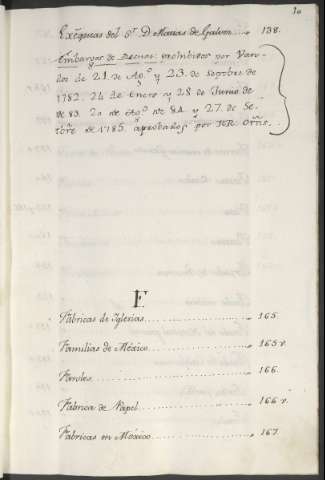 10
Exequias del Sr. D. Matias de Galvez ... 138.
Embargos de prohibidos por Van-
dos de 21. de Ag.º y 23. de Sepbre de
1782. 24 de Enero y 28 de Junio de
de 83. 20 de Ag.º de 84. y 27. de Se-
de 1785. aprobados por
F
Fabricas de Iglesias ... 165.
Familias de México ... 165 v.
Faroles ... 166.
Fabrica de Papel ... 166 v.
Fabricas en México ... 167.